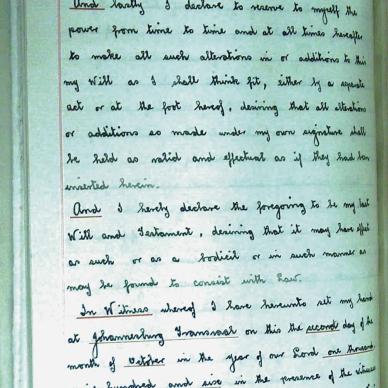 And lastly I declare to reserve to myself the
power from time to time and at all times hereafter
to make all such alterations in or additions to this
my Will as I shall think fit, either by a separate
act or at the foot hereof, desiring that all alterations
or additions so made under my own signature shall
be held as valid and effectual as if they had been
inserted herein.
And I hereby declare the foregoing to be my last
Will and Testament, desiring that it may have effect
as such or as a Codicil or in such manner as
may be found to consist with Law.
In Witness whereof I have hereunto set my hand
at Johannesburg Transvaal on this the second day of the
month of October in the year of our Lord one thousand
hundred and six in the presence of the witnesses